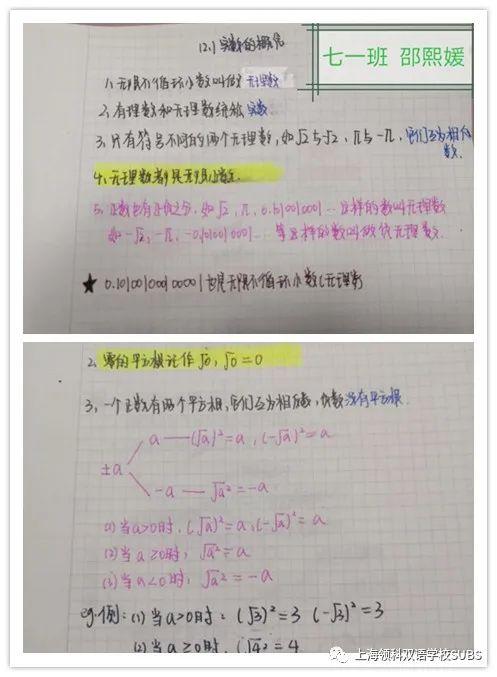 12.1 实数的概念
七一班 邵熙媛
1、无限不循环小数叫做无理数
2、有理数和无理数统称实数
3、只有符号不同的两个无理数,如√2与-√2,π与-π,它们互为相反数.
4、无理数都是无限小数.
5、正数也有正负之分,如√2,π,0.1010010001…这样的数叫无理数
如-√2,-π,-0.101001000|… 等这样的数叫做负无理数.
★ 0.101001000100001也是无限不循环小数(无理数
2、零的平方根记作√0,√0=0
3、一个正数有两个平方根,它们互为相反数,负数没有平方根.
a——(√a)²=a,(-√a)²=a
±a
-a——√a²=-a
(1)当a>0时,(√a)²=a,(-√a)²=a
(2)当a≥0时,√a²=a
(3)当a<0时,√a²=-a
eg.例:(1)当a>0时:(√3)²=3 (-√3)²=3
(2)当a≥0时,(√4²=4
上海领科双语学校SUBS